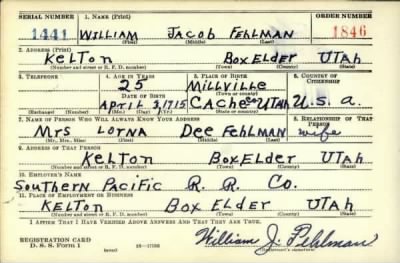 SERIAL NUMBER 1. NAME (Print) ORDER NUMBER
1441 WILLIAM JACOB FEHLMAN 1846
(First) (Middle) (Last)
2. ADDRESS (Print)
KELTON BOX ELDER UTAH
(Number and street or R. F. D. number) (Town) (County) (State)
3. TELEPHONE 4. AGE IN YEARS 5. PLACE OF BIRTH 6. COUNTRY OF CITIZENSHIP
25 Millville
DATE OF BIRTH (Town or county)
April 3, 1915 CACHE UTAH U.S.A.
(Exchange) (Number) (Mo.) (Day) (Yr.) (State or country)
7. NAME OF PERSON WHO WILL ALWAYS KNOW YOUR ADDRESS 8. RELATIONSHIP OF THAT PERSON
Mrs LORNA Dee FEHLMAN wife
(Mr., Mrs., Miss) (First) (Middle) (Last)
9. ADDRESS OF THAT PERSON
KELTON BOX ELDER UTAH
(Number and street or R. F. D. number) (Town) (County) (State)
10. EMPLOYER'S NAME
Southern Pacific R. R. Co.
11. PLACE OF EMPLOYMENT OR BUSINESS
KELTON BOX ELDER UTAH
(Number and street or R. F. D. number) (Town) (County) (State)
I AFFIRM THAT I HAVE VERIFIED ABOVE ANSWERS AND THAT THEY ARE TRUE.
REGISTRATION CARD
D. S. S. Form 1 William J. Fehlman
(Registrant's signature)